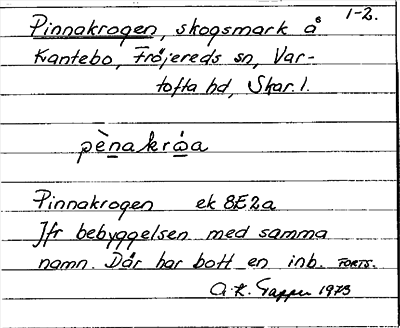 1-2.
Pinnakrogen, skogsmark å
Kantebo, Fröjereds sn, Var-
tofta hd, Skar. l.
pènakrɷ̀a
Pinnakrogen ek 8E2a
Jfr bebyggelsen med samma
namn. Där har bott en inb. FORTS.
A.K. Tapper 1973